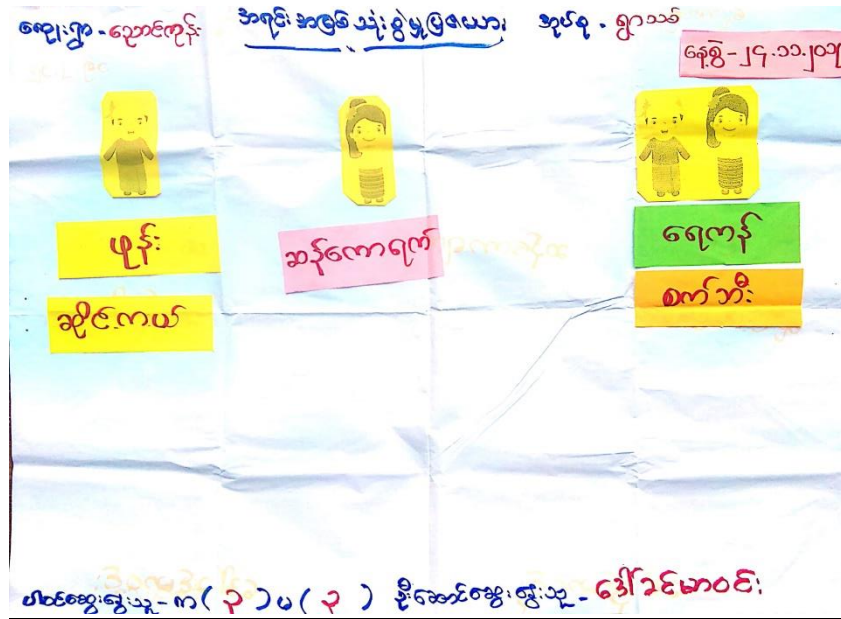 ကျေးရွာ - ညောင်ကုန်း အရင်းအမြစ်သုံးစွဲမှုပြဇယား အုပ်စု - ရွာသစ်
နေ့စွဲ - ၂၄.၁၁.၂၀၁
ဖုန်း
ဆိုင်ကယ်
ဆန်ကောရက်
ရေကန်
စက်ဘီး
ပါဝင်ဆွေးနွေးသူ - က ( ၃ ) မ ( ၃ ) ဦးဆောင်ဆွေးနွေးသူ - ဒေါ်ခင်မာဝင်း